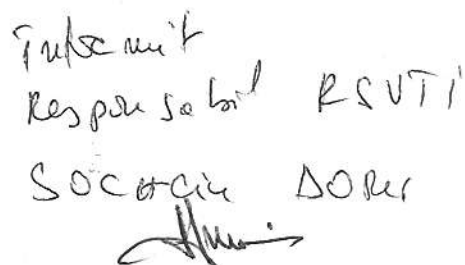 Întocmit
Responsabil RSVTI
SOCACIU DORU